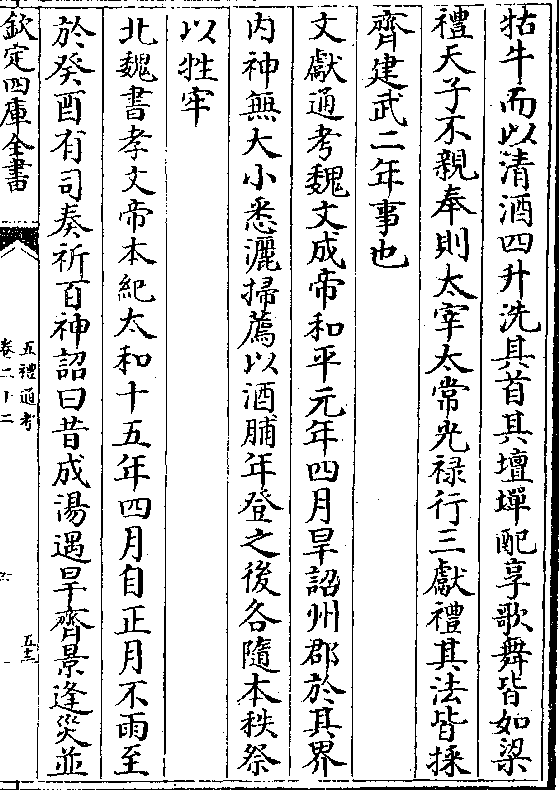 牯牛而以清酒四升洗其首其壇墠配享歌舞皆如梁
禮天子不親奉則太宰太常光禄行三獻禮其法皆採
齊建武二年事也
文獻通考魏文成帝和平元年四月旱詔州郡於其界
内神無大小悉灑掃薦以酒脯年登之後各隨本秩祭
以牲牢
北魏書孝文帝本紀太和十五年四月自正月不雨至
於癸酉有司奏祈百神詔曰昔成湯遇旱齊景逢災並
欽定四庫全書
五禮通考
卷二十二